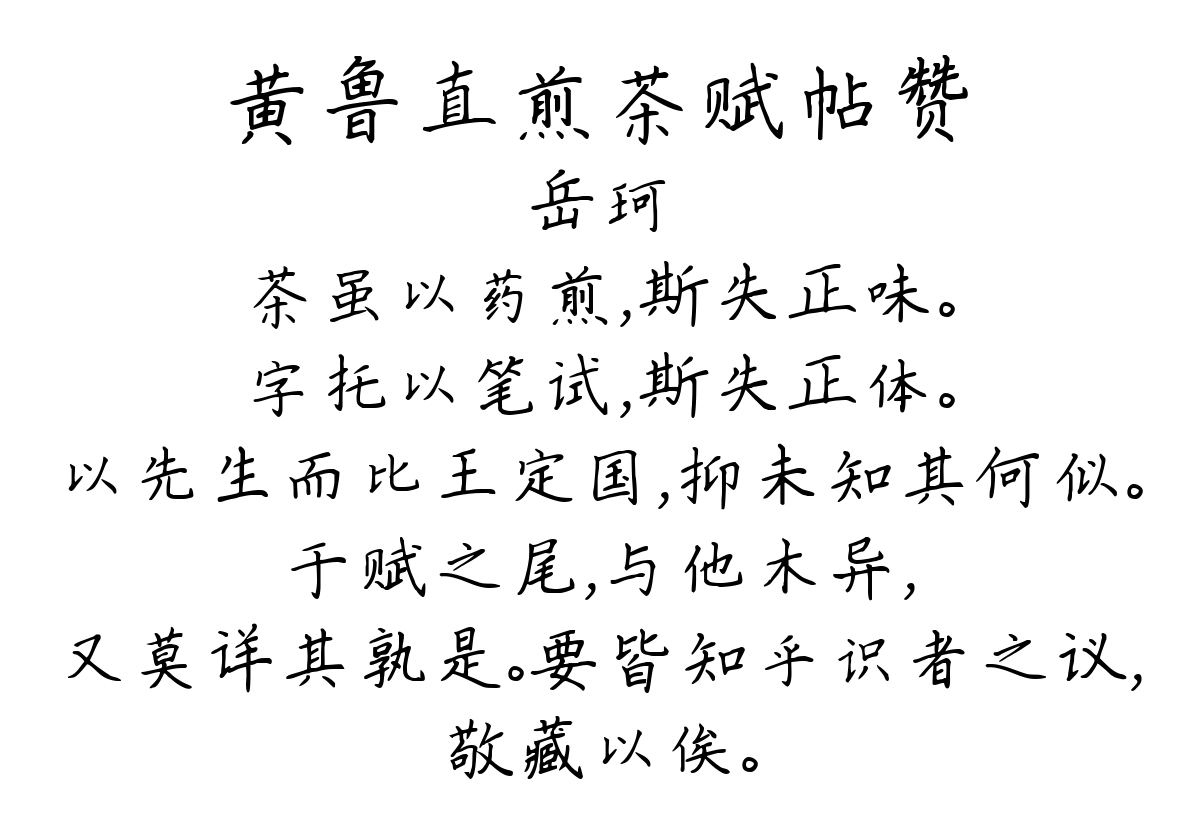 黄鲁直煎茶赋帖赞
岳珂
茶虽以药煎,斯失正味。
字托以笔试,斯失正体。
以先生而比王定国,抑未知其何似。
于赋之尾,与他木异,
又莫详其孰是。要皆知乎识者之议,
敬藏以俟。